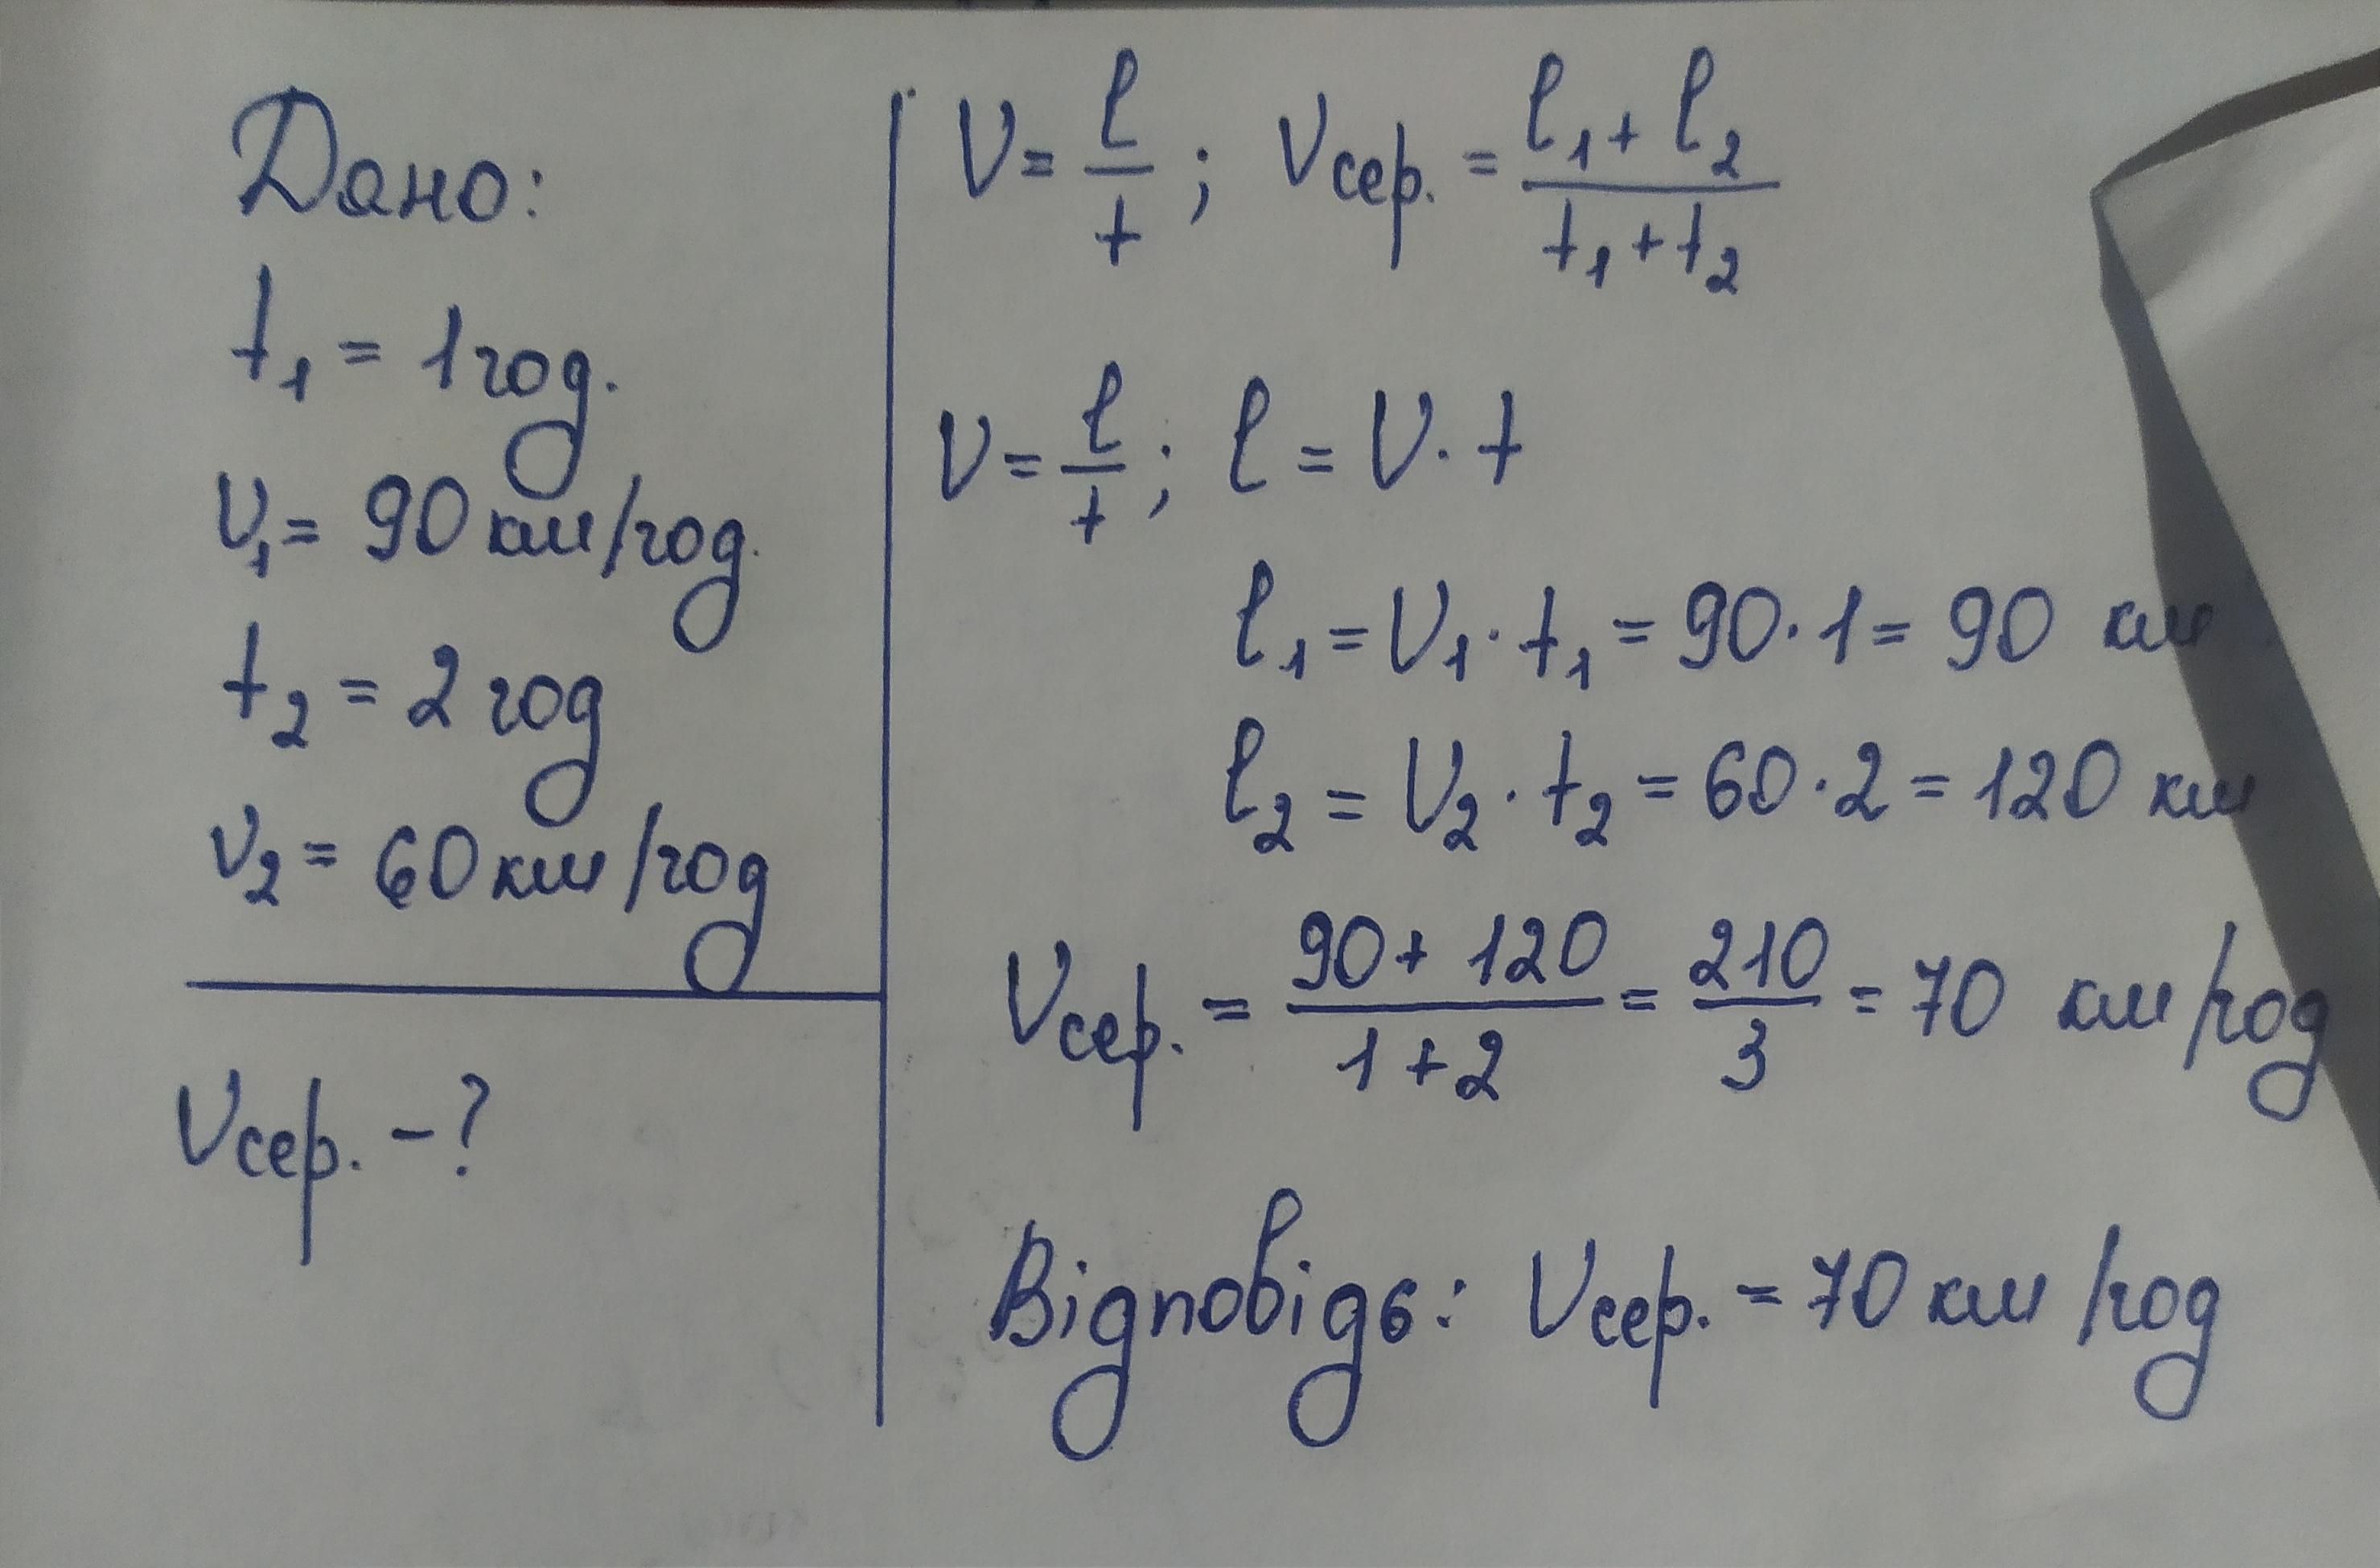 Дано:
t₁ = 1 год.
V₁ = 90 км/год.
t₂ = 2 год
V₂ = 60 км/год
Vсер. – ?
V = l/t ; Vсер. = (l₁ + l₂)/(t₁ + t₂)
V = l/t ; l = V · t
l₁ = V₁ · t₁ = 90 · 1 = 90 км
l₂ = V₂ · t₂ = 60 · 2 = 120 км
Vсер. = (90 + 120)/(1 + 2) = 210/3 = 70 км/год
Відповідь: Vсер. = 70 км/год